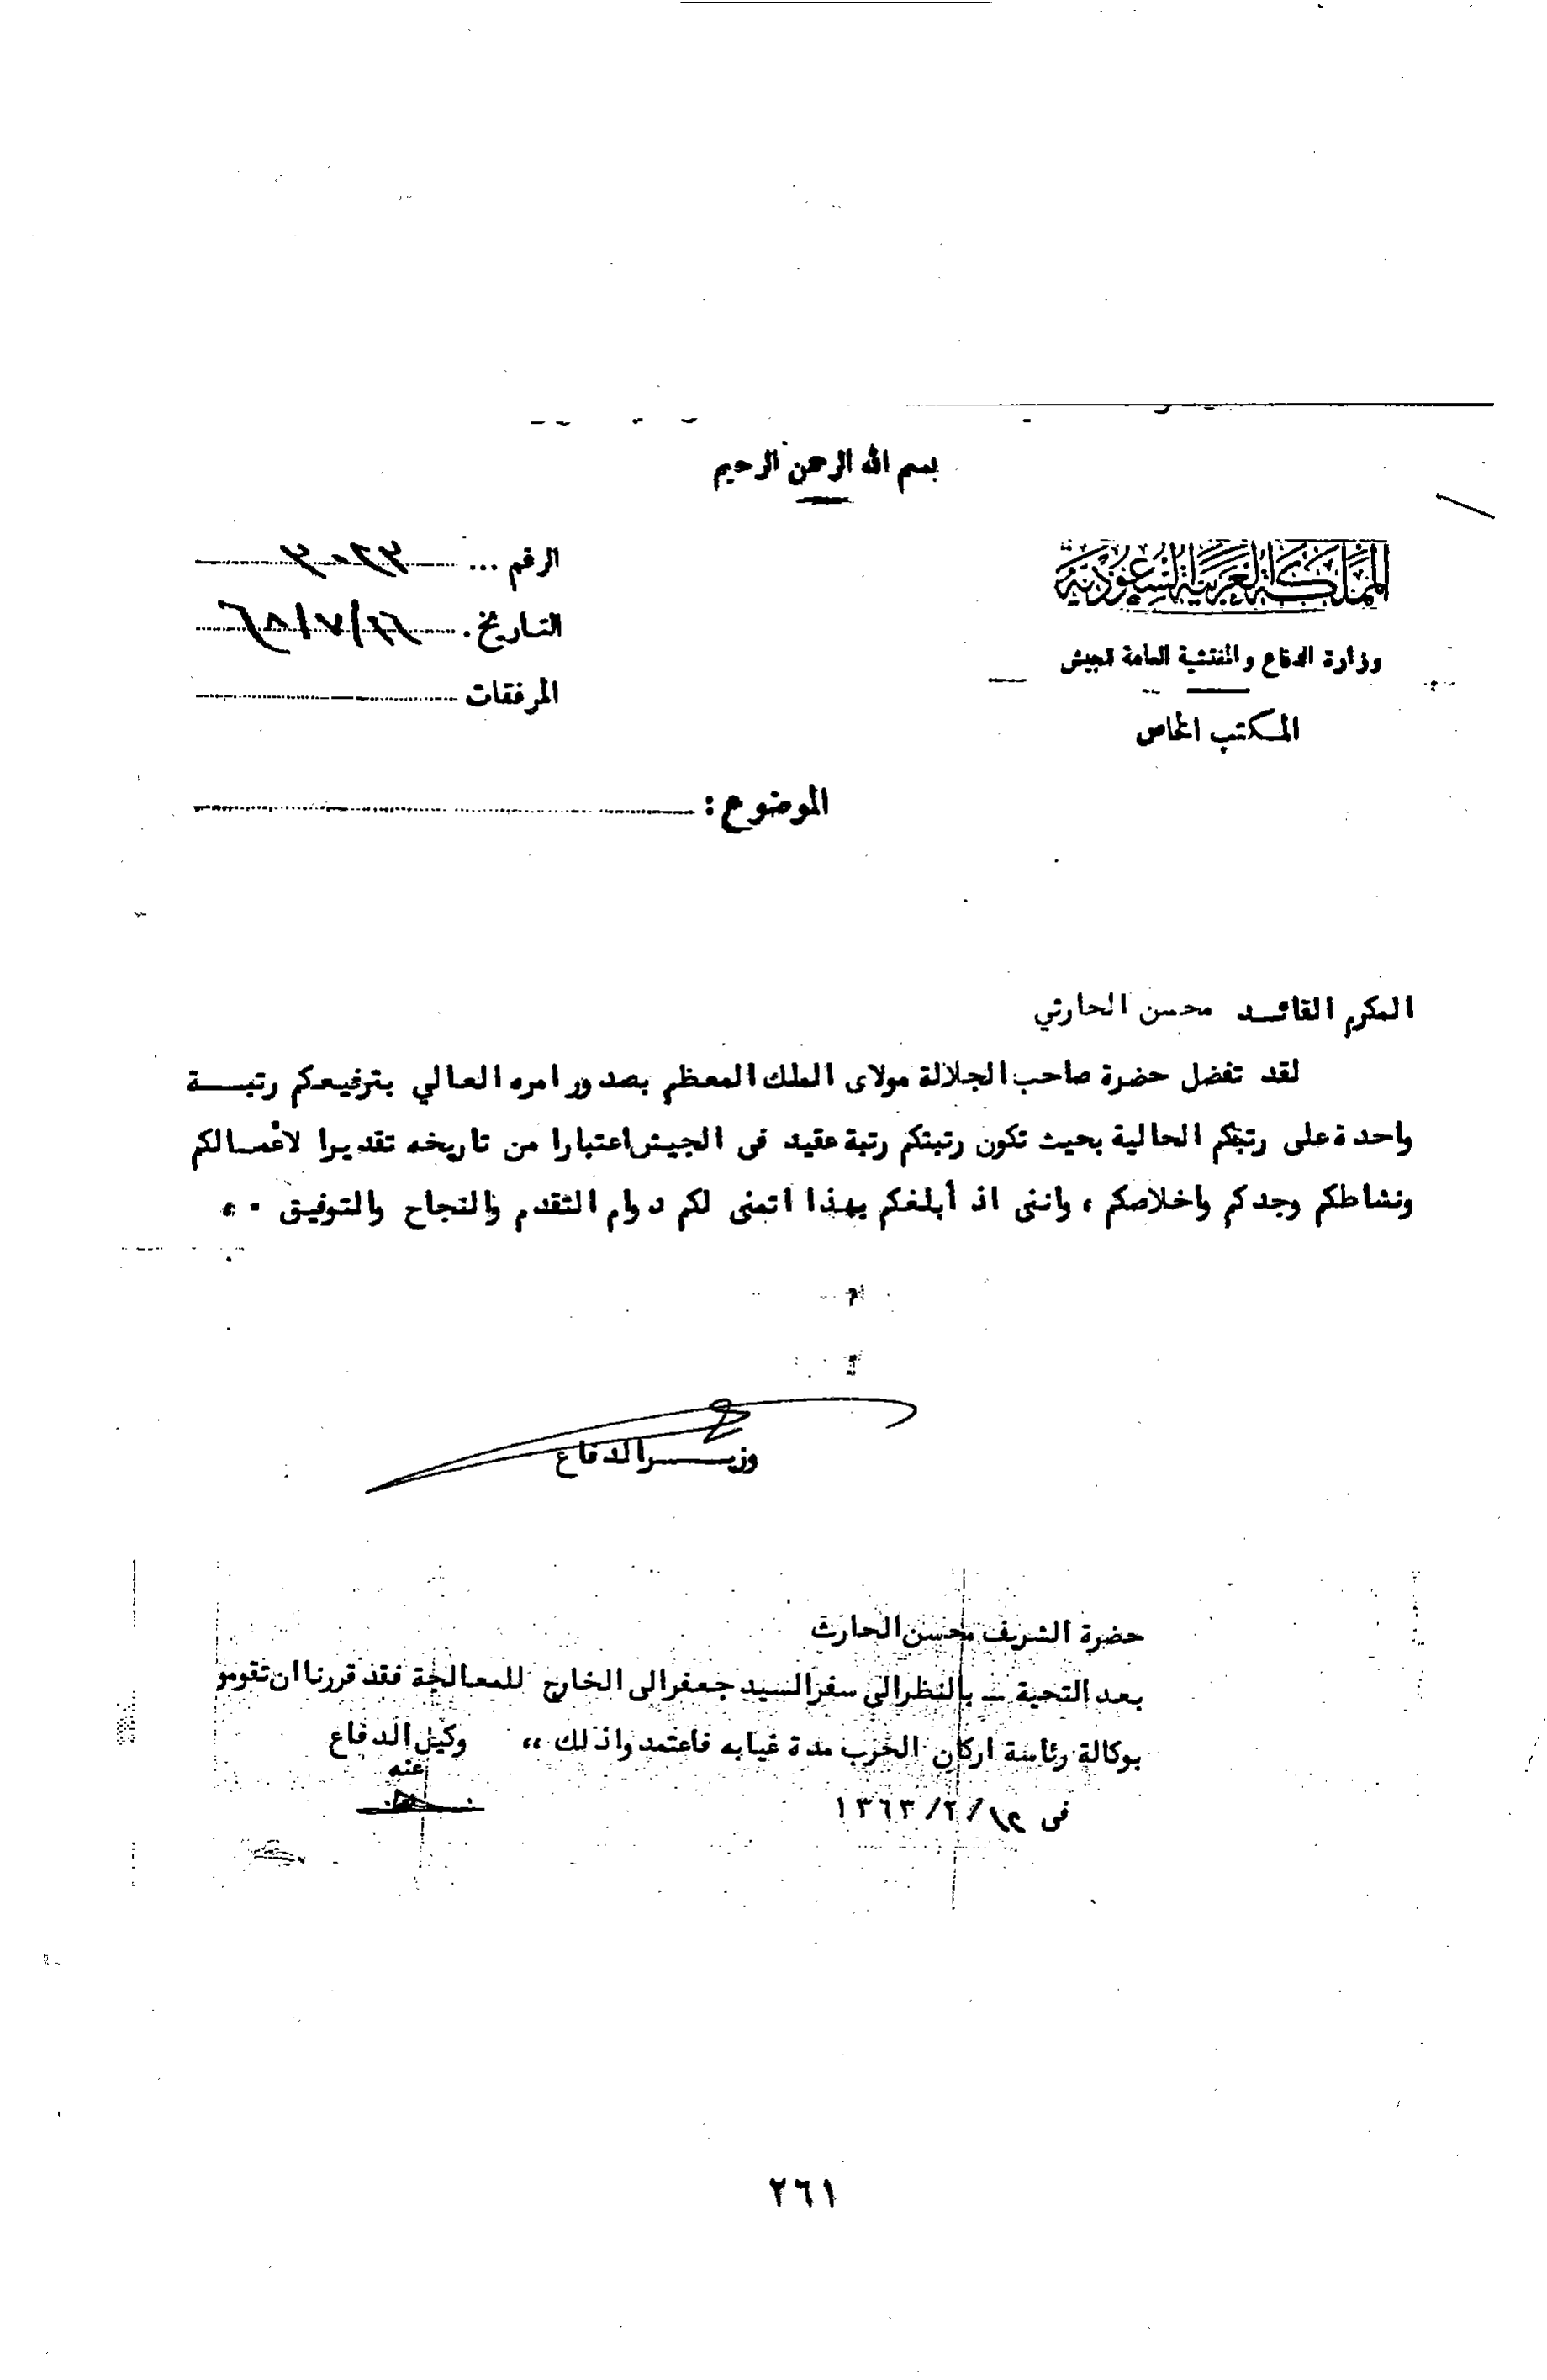 بسم الله الرحمن الرحيم
المملكة العربية السعودية
وزارة الدفاع والمفتشية العامة للجيش
المكتب الخاص
الرقم ...
التاريخ.
المرفقات
الموضوع :
المكرم القائد محسن الحارثي
لقد تفضل حضرة صاحب الجلالة مولاى الملك المعظم بصدور امره العالي بترفيعكم رتبة
واحدة على رتبتكم الحالية بحيث تكون رتبتكم رتبة عقيد فى الجيش اعتبارا من تاريخه تقديرا لاعمالكم
ونشاطكم وجدكم واخلاصكم ، واننى اذ أبلغكم بهذا اتمنى لكم دوام التقدم والنجاح والتوفيق ..
وزير الدفاع
حضرة الشريف محسن الحارث
بعد التحية ـ بالنظر الى سفر السيد جعفر الى الخارج للمعالجة فقد قررنا ان تقومو
بوكالة رئاسة اركان الحرب مدة غيابه فاعتمدوا ذلك ،،
وكيل الدفاع
عنه
فى ١٢/ ٢/ ١٣٦٣
٢٦١